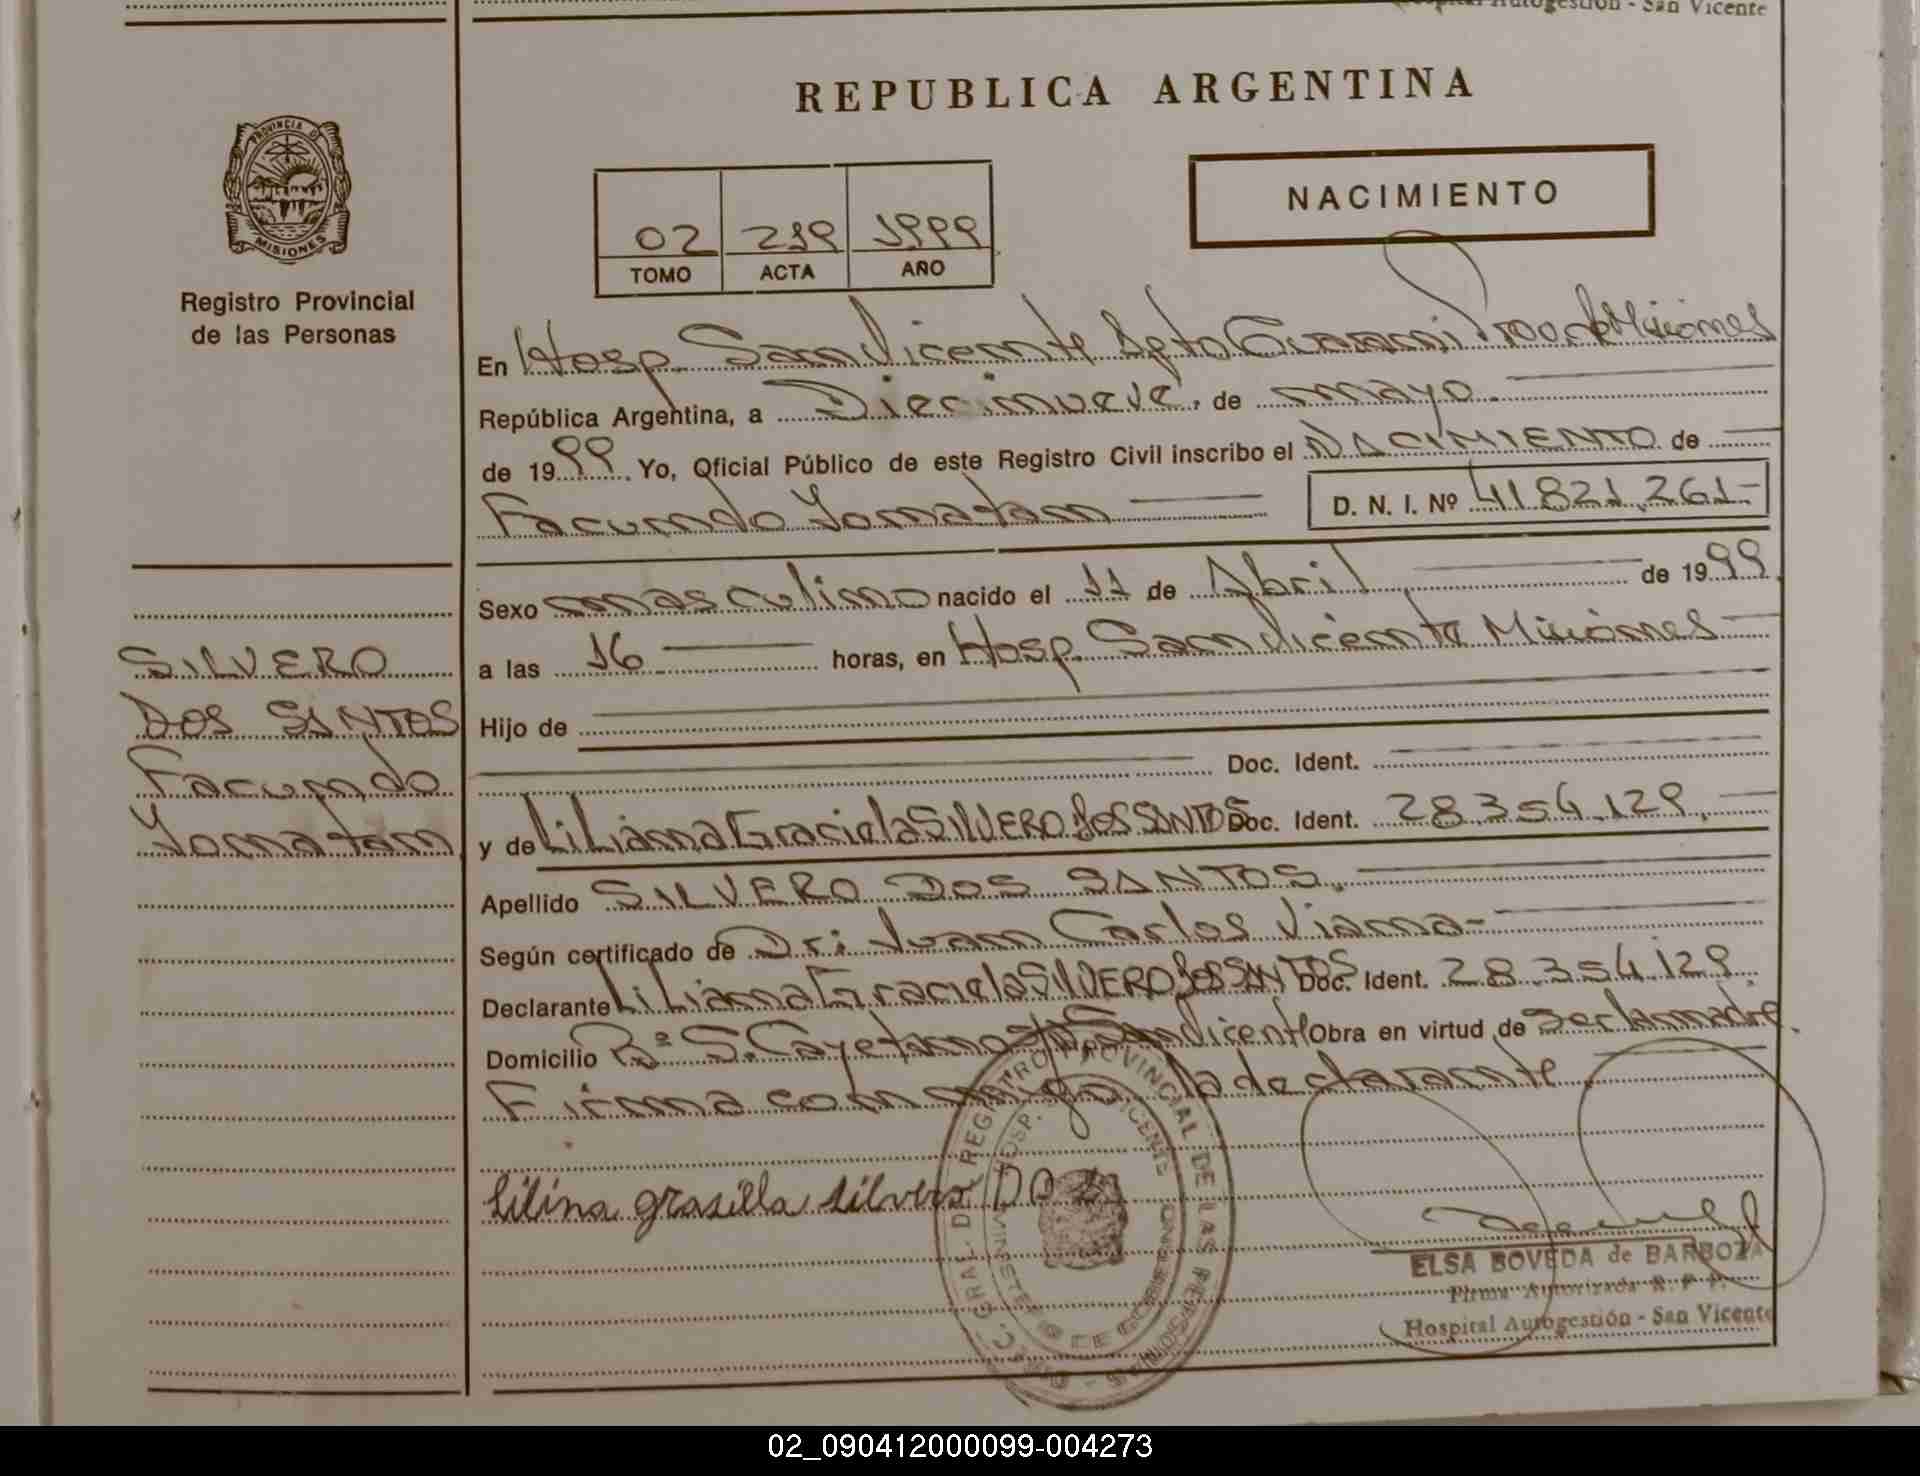 Hospital Autogestión - San Vicente
REPUBLICA ARGENTINA
PROVINCIA D
MISIONES
Registro Provincial
de las Personas
NACIMIENTO
02 219 1999
TOMO ACTA AÑO
En Hosp. San Vicente Dpto Guarani Prov. de Misiones
República Argentina, a Diecinueve, de mayo.
de 1999. Yo, Oficial Público de este Registro Civil inscribo el NACIMIENTO de
Facundo Yonatan D. N. I. Nº 41.821.261-
Sexo masculino nacido el 11 de Abril de 1999
a las 16 horas, en Hosp. San Vicente Misiones
Hijo de
Doc. Ident.
y de Liliana Graciela SILVERO DOS SANTOS Doc. Ident. 28.354.129.
Apellido SILVERO DOS SANTOS.
Según certificado de Dr: Juan Carlos Viana-
Declarante Liliana Graciela SILVERO DOS SANTOS Doc. Ident. 28.354.129
Domicilio Bº S. Cayetano San Vicente Obra en virtud de Ser la madre.
Firma conmigo la declarante.
SILVERO
DOS SANTOS
Facundo
Yonatan
Lilina grasilla silvero DO
DIREC. GRAL. D REGISTRO PROVINCIAL DE LAS PERSONAS
HOSP. VICENTE
MINISTERIO DE GOBIERNO
ELSA BOVEDA de BARBOZA
Firma Autorizada R. P. P.
Hospital Autogestión - San Vicente
02_090412000099-004273